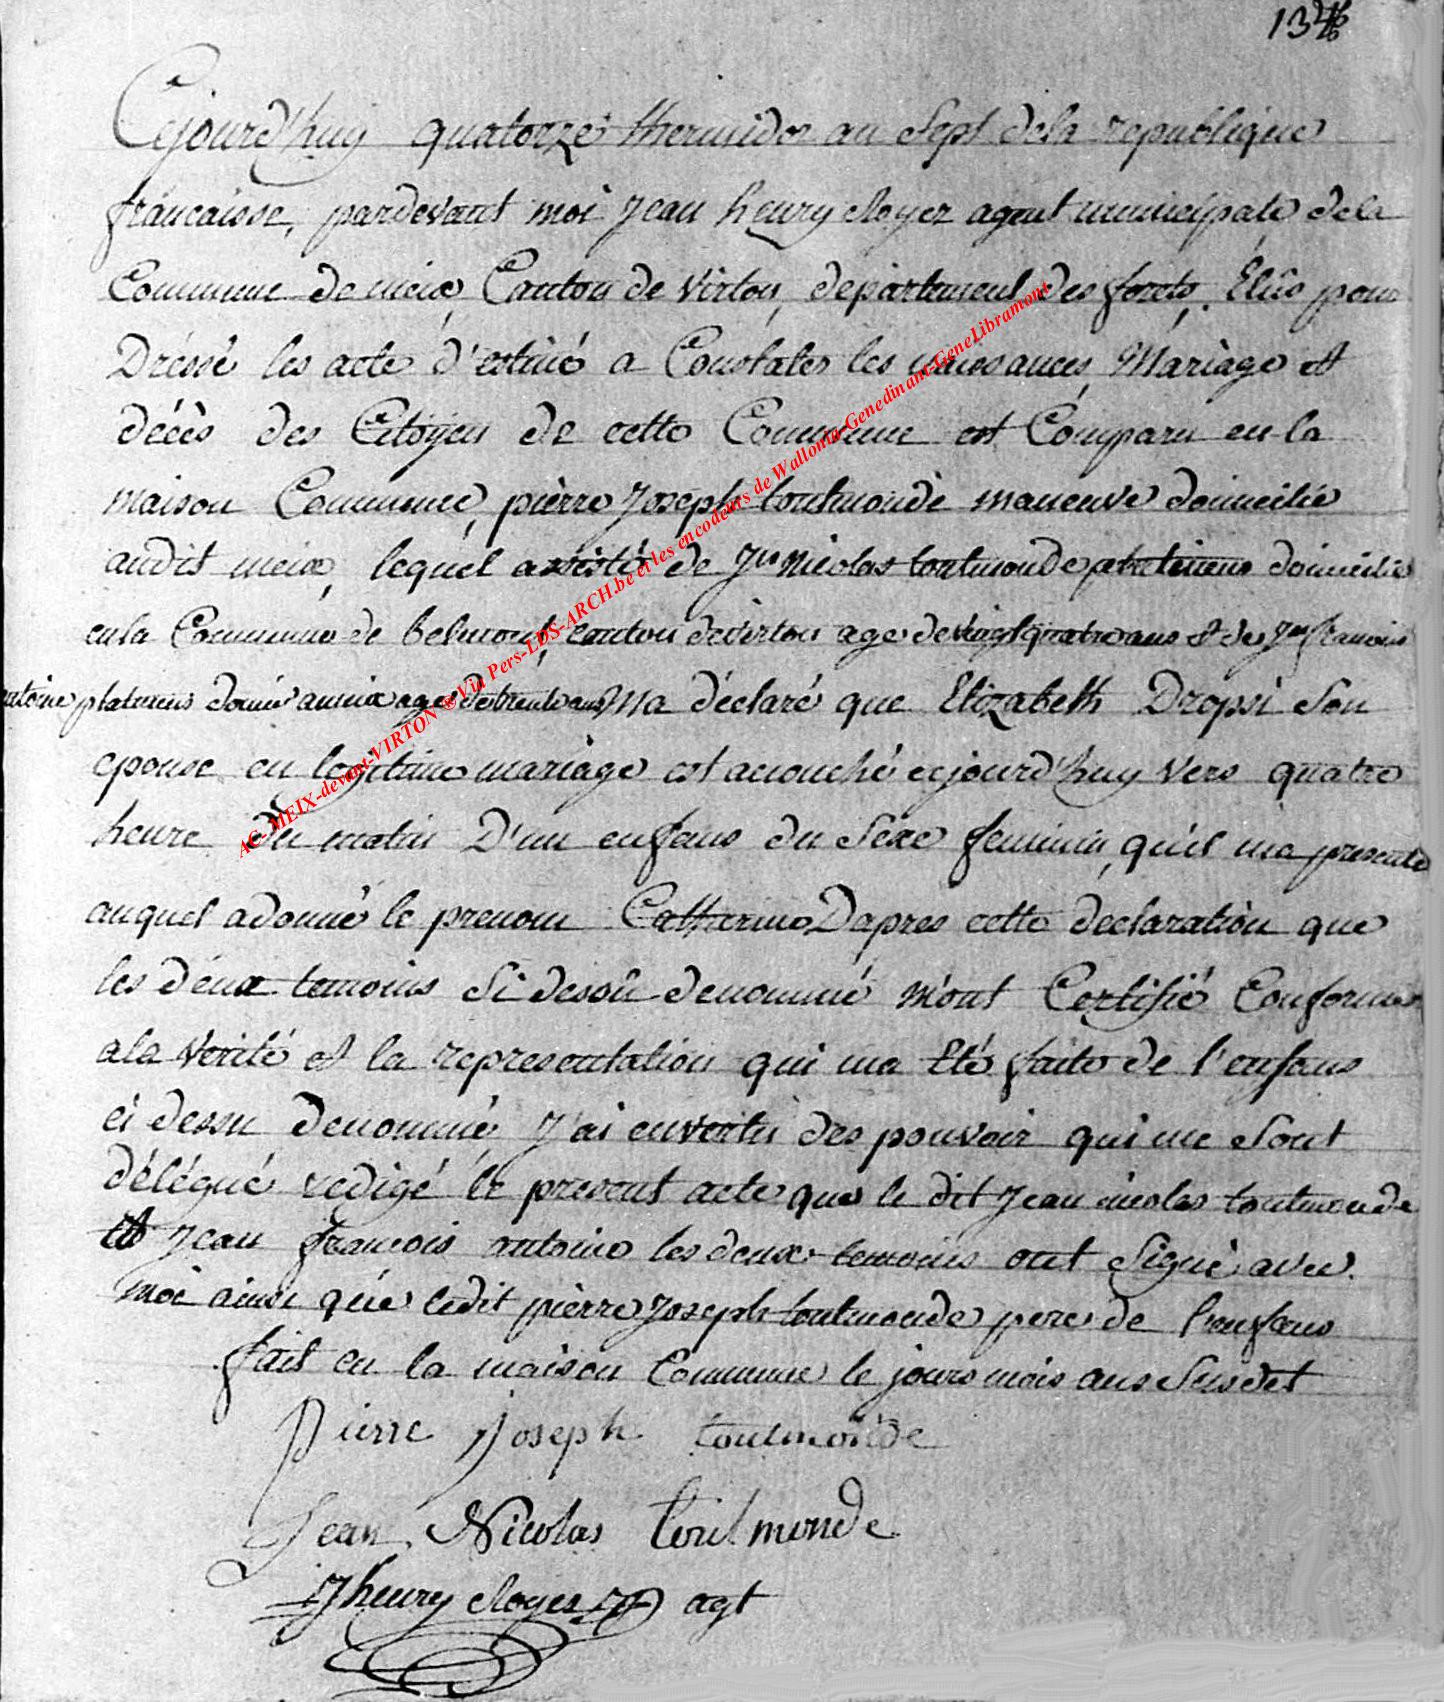 134
Cejourd'huy quatorze thermidor an Sept dela republique
francaisse, pardevant moi Jean henry cloyer agent municipale dela
Commune de meix, Canton de Virton, departement des forets, Élûs pour
Dréssé les acte d'estiné a Constater les naissances, Mariage et
décès des Citoyen de cette Commune est Comparu en la
maison Commune, pièrre Joseph toutmonde maneuve domicilié
audit meix, lequel assisté de Jn Nicolas toutmonde domicilié
en la Commune de belmont, canton devirton age de vingt quatre ans et de Jn francois
antoine platineur domié aumeix age de trente ans Ma déclaré que Elizabeth Dropsi Son
epouse en légitime mariage est acouché cejourd'huy vers quatre
heure du matin D'un enfans du Sexe feminin, qu'il ma presenté
auquel adonné le prenom Catherine Dapres cette declaration que
les deux temoins Si dessû denommé m'ont Certifié Conforme
ala verité et la representation qui ma Eté faite de l'enfans
ci dessu denommé J'ai envertu des pouvoir qui me Sont
délégué redigé le present acte que le dit Jean nicolas toutmonde
et Jean francois antoine les deux temoins ont Signé avec
moi ainsi que ledit pièrre Joseph toutmonde pere de l'enfans
fait en la maison Commune le jours mois ans Susdit
Pierre Joseph toutmonde
Jean Nicolas toutmonde
Jhenry cloyer agt
AC-MEIX-devant-VIRTON ® Via Pers-LDS-ARCH.be et les encodeurs de Wallonia-Genedinant-GeneLibramont